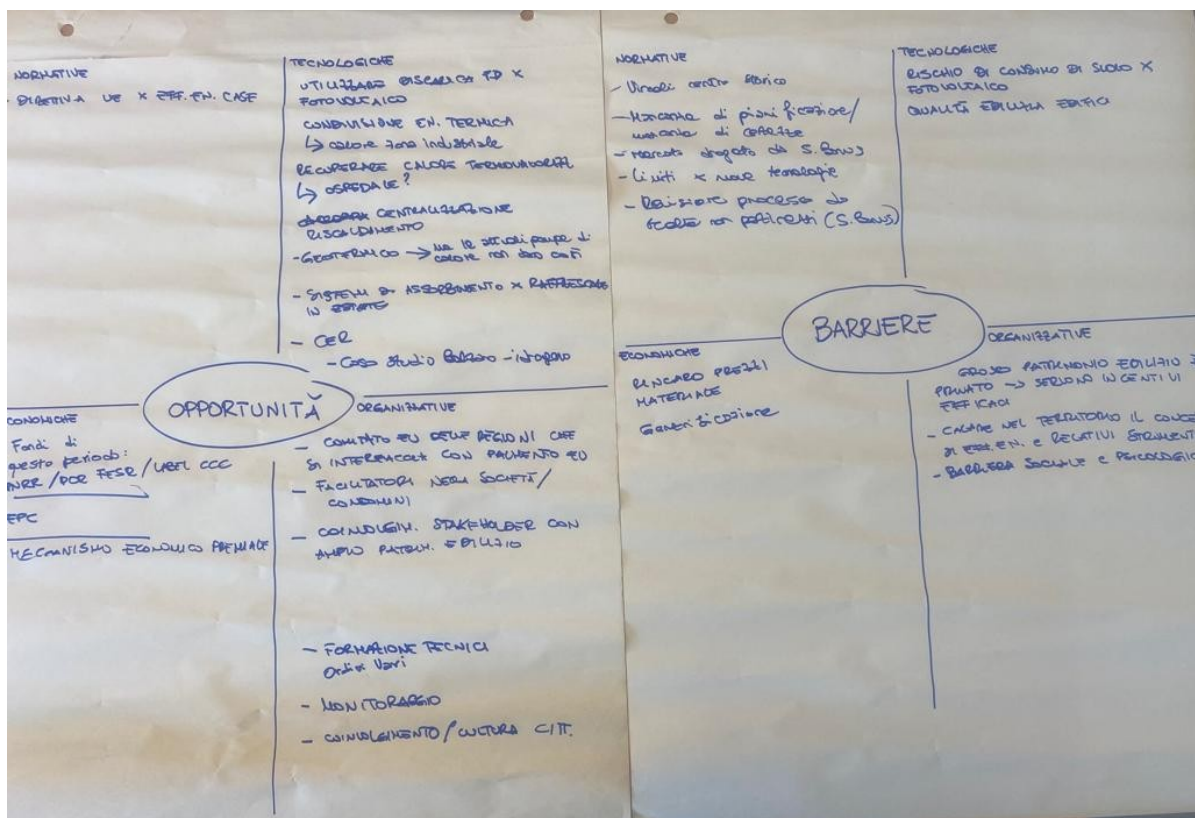 NORMATIVE
- DIRETTIVA UE X EFF. EN. CASE
TECNOLOGICHE
UTILIZZARE DISCARICA FD X
FOTOVOLTAICO
CONDIVISIONE EN. TERMICA
↳ calore zona industriale
RECUPERARE CALORE
↳ OSPEDALE?
CENTRALIZZAZIONE
RISCALDAMENTO
- GEOTERMICO → ma le attuali pompe di
calore non
- SISTEMI DI ASSORBIMENTO X
IN ESTATE
- CER
- Caso studio
OPPORTUNITÀ
CONOMICHE
Fondi di
questo periodo:
NRR / POR FESR / LABEL CCC
EPC
MECCANISMO ECONOMICO PREMIALE
ORGANIZZATIVE
- COMITATO EU DELLE REGIONI CHE
SI CON EU
- FACILITATORI NELLA SOCIETÀ /
CONDOMINI
- COINVOLGIM. STAKEHOLDER CON
AMPIO PATRIM. EDILIZIO
- FORMAZIONE TECNICI
Ordini Vari
- MONITORAGGIO
- COINVOLGIMENTO / CULTURA CITT.
NORMATIVE
- Vincoli centro storico
- Mancanza di pianificazione /
mancanza di
- Mercato drogato da S. Bonus
- Limiti x nuove tecnologie
- processo di
scelte non (S. Bonus)
TECNOLOGICHE
RISCHIO DI CONSUMO DI SUOLO X
FOTOVOLTAICO
QUALITÀ EDILIZIA EDIFICI
BARRIERE
ECONOMICHE
RINCARO PREZZI
MATERIALE
Gentrificazione
ORGANIZZATIVE
GROSSO PATRIMONIO EDILIZIO È
PRIVATO → SERVONO INCENTIVI
EFFICACI
- CALARE NEL TERRITORIO IL CONCE
DI EFF. EN. e RELATIVI STRUMENTI
- BARRIERA SOCIALE e PSICOLOGIC